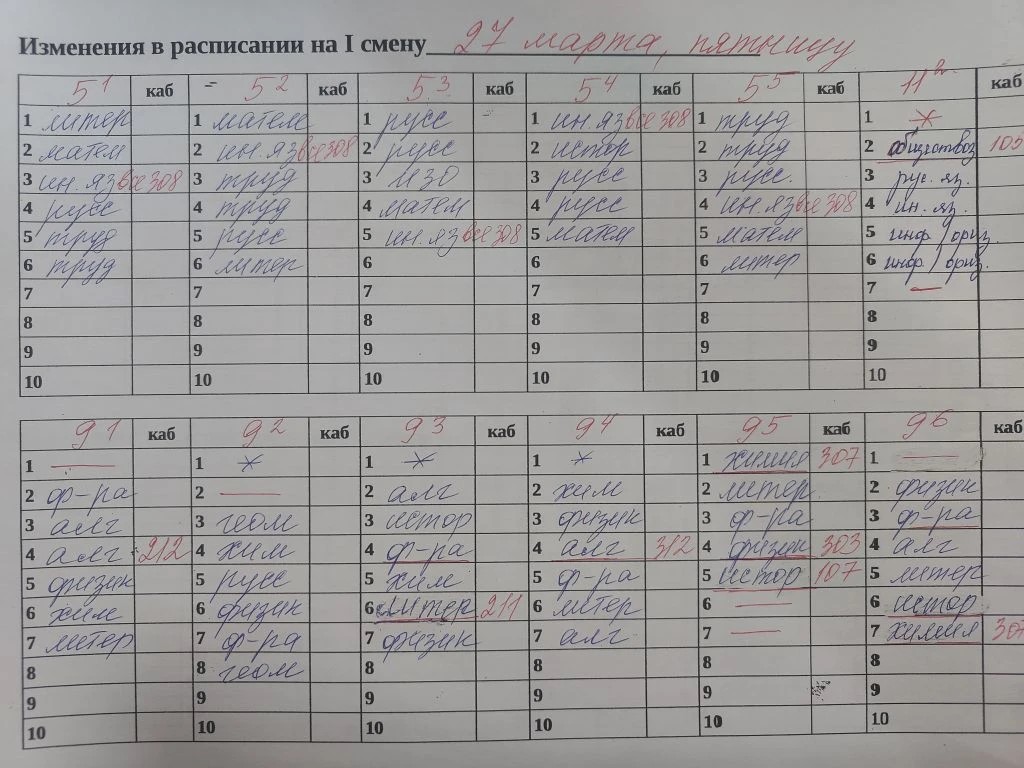 Изменения в расписании на I смену 27 марта, пятницу
5 1 каб 5 2 каб 5 3 каб 5 4 каб 5 5 каб 11 каб
1 литер 1 матем 1 русс 1 ин. яз все 308 1 труд 1
2 матем 2 ин. яз все 308 2 русс 2 истор 2 труд 2 обществоз 105
3 ин. яз все 308 3 труд 3 ИЗО 3 русс 3 русс. 3 рус. яз.
4 русс 4 труд 4 матем 4 русс 4 ин. яз все 308 4 ин. яз.
5 труд 5 русс 5 ин. яз все 308 5 матем 5 матем 5 инф / ориз.
6 труд 6 литер 6 6 6 литер 6 инф / ориз.
7 7 7 7 7 7 —
8 8 8 8 8 8
9 9 9 9 9 9
10 10 10 10 10 10
9 1 каб 9 2 каб 9 3 каб 9 4 каб 9 5 каб 9 6 каб
1 — 1 1 1 1 химия 307 1 —
2 ф-ра 2 — 2 алг 2 хим 2 литер 2 физик
3 алг 3 геом 3 истор 3 физик 3 ф-ра 3 ф-ра
4 алг 212 4 хим 4 ф-ра 4 алг 312 4 физик 303 4 алг
5 физик 5 русс 5 хим 5 ф-ра 5 истор 107 5 литер
6 хим 6 физик 6 литер 211 6 литер 6 — 6 истор
7 литер 7 ф-ра 7 физик 7 алг 7 — 7 химия 307
8 8 геом 8 8 8 8
9 9 9 9 9 9
10 10 10 10 10 10